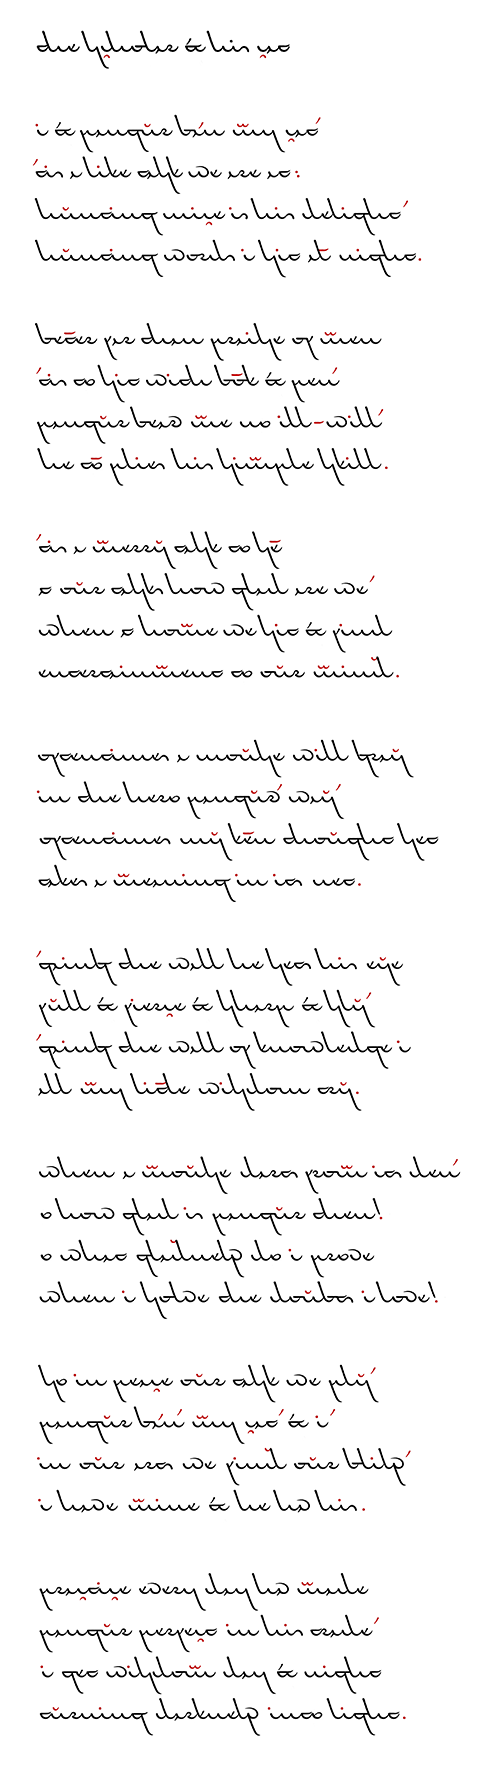 the scholar & his cat
i & pangur bán, my cat,
'tis a like task we are at:
hunting mice is his delight,
hunting words i sit all night.
better far than praise of men
'tis to sit with book & pen,
pangur bears me no ill-will,
he too plies his simple skill.
'tis a merry task to see
at our tasks how glad are we,
when at home we sit & find
entertainment to our mind.
oftentimes a mouse will stray
in the hero pangur's way,
oftentimes my keen thought set
takes a meaning in its net.
'gainst the wall he sets his eye
full & fierce & sharp & sly,
'gainst the wall of knowledge i
all my little wisdom try.
when a mouse darts from its den,
o how glad is pangur then!
o what gladness do i prove
when i solve the doubts i love!
so in peace our task we ply,
pangur bán, my cat, & i,
in our arts we find our bliss,
i have mine & he has his.
practice every day has made
pangur perfect in his trade,
i get wisdom day & night
turning darkness into light.